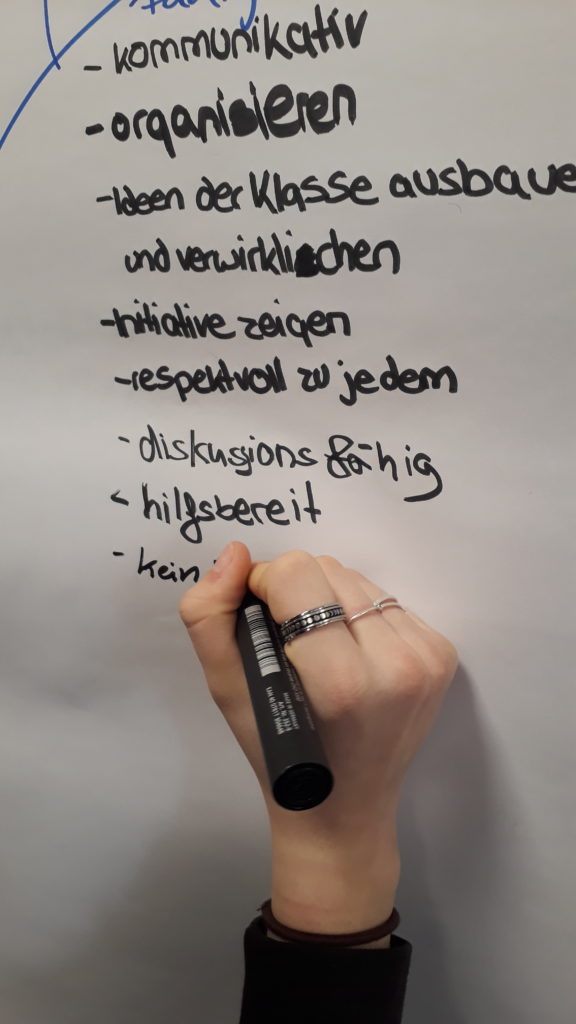 - kommunikativ
- organisieren
- Ideen der Klasse ausbaue
und verwirklichen
- Initiative zeigen
- respektvoll zu jedem
- diskussionsfähig
- hilfsbereit
- kein